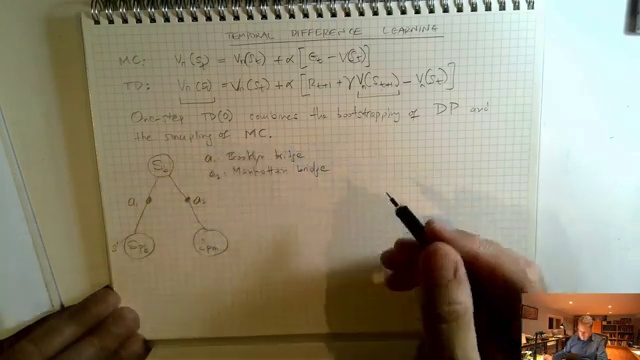 TEMPORAL DIFFERENCE LEARNING
MC: Vπ(St) = Vπ(St) + α [Gt - V(St)]
TD: Vπ(St) = Vπ(St) + α [Rt+1 + γ Vπ(St+1) - Vπ(St)]
One-step TD(0) combines the bootstrapping of DP and
the sampling of MC.
a1: Brooklyn bridge
a2: Manhattan bridge
a1 a2